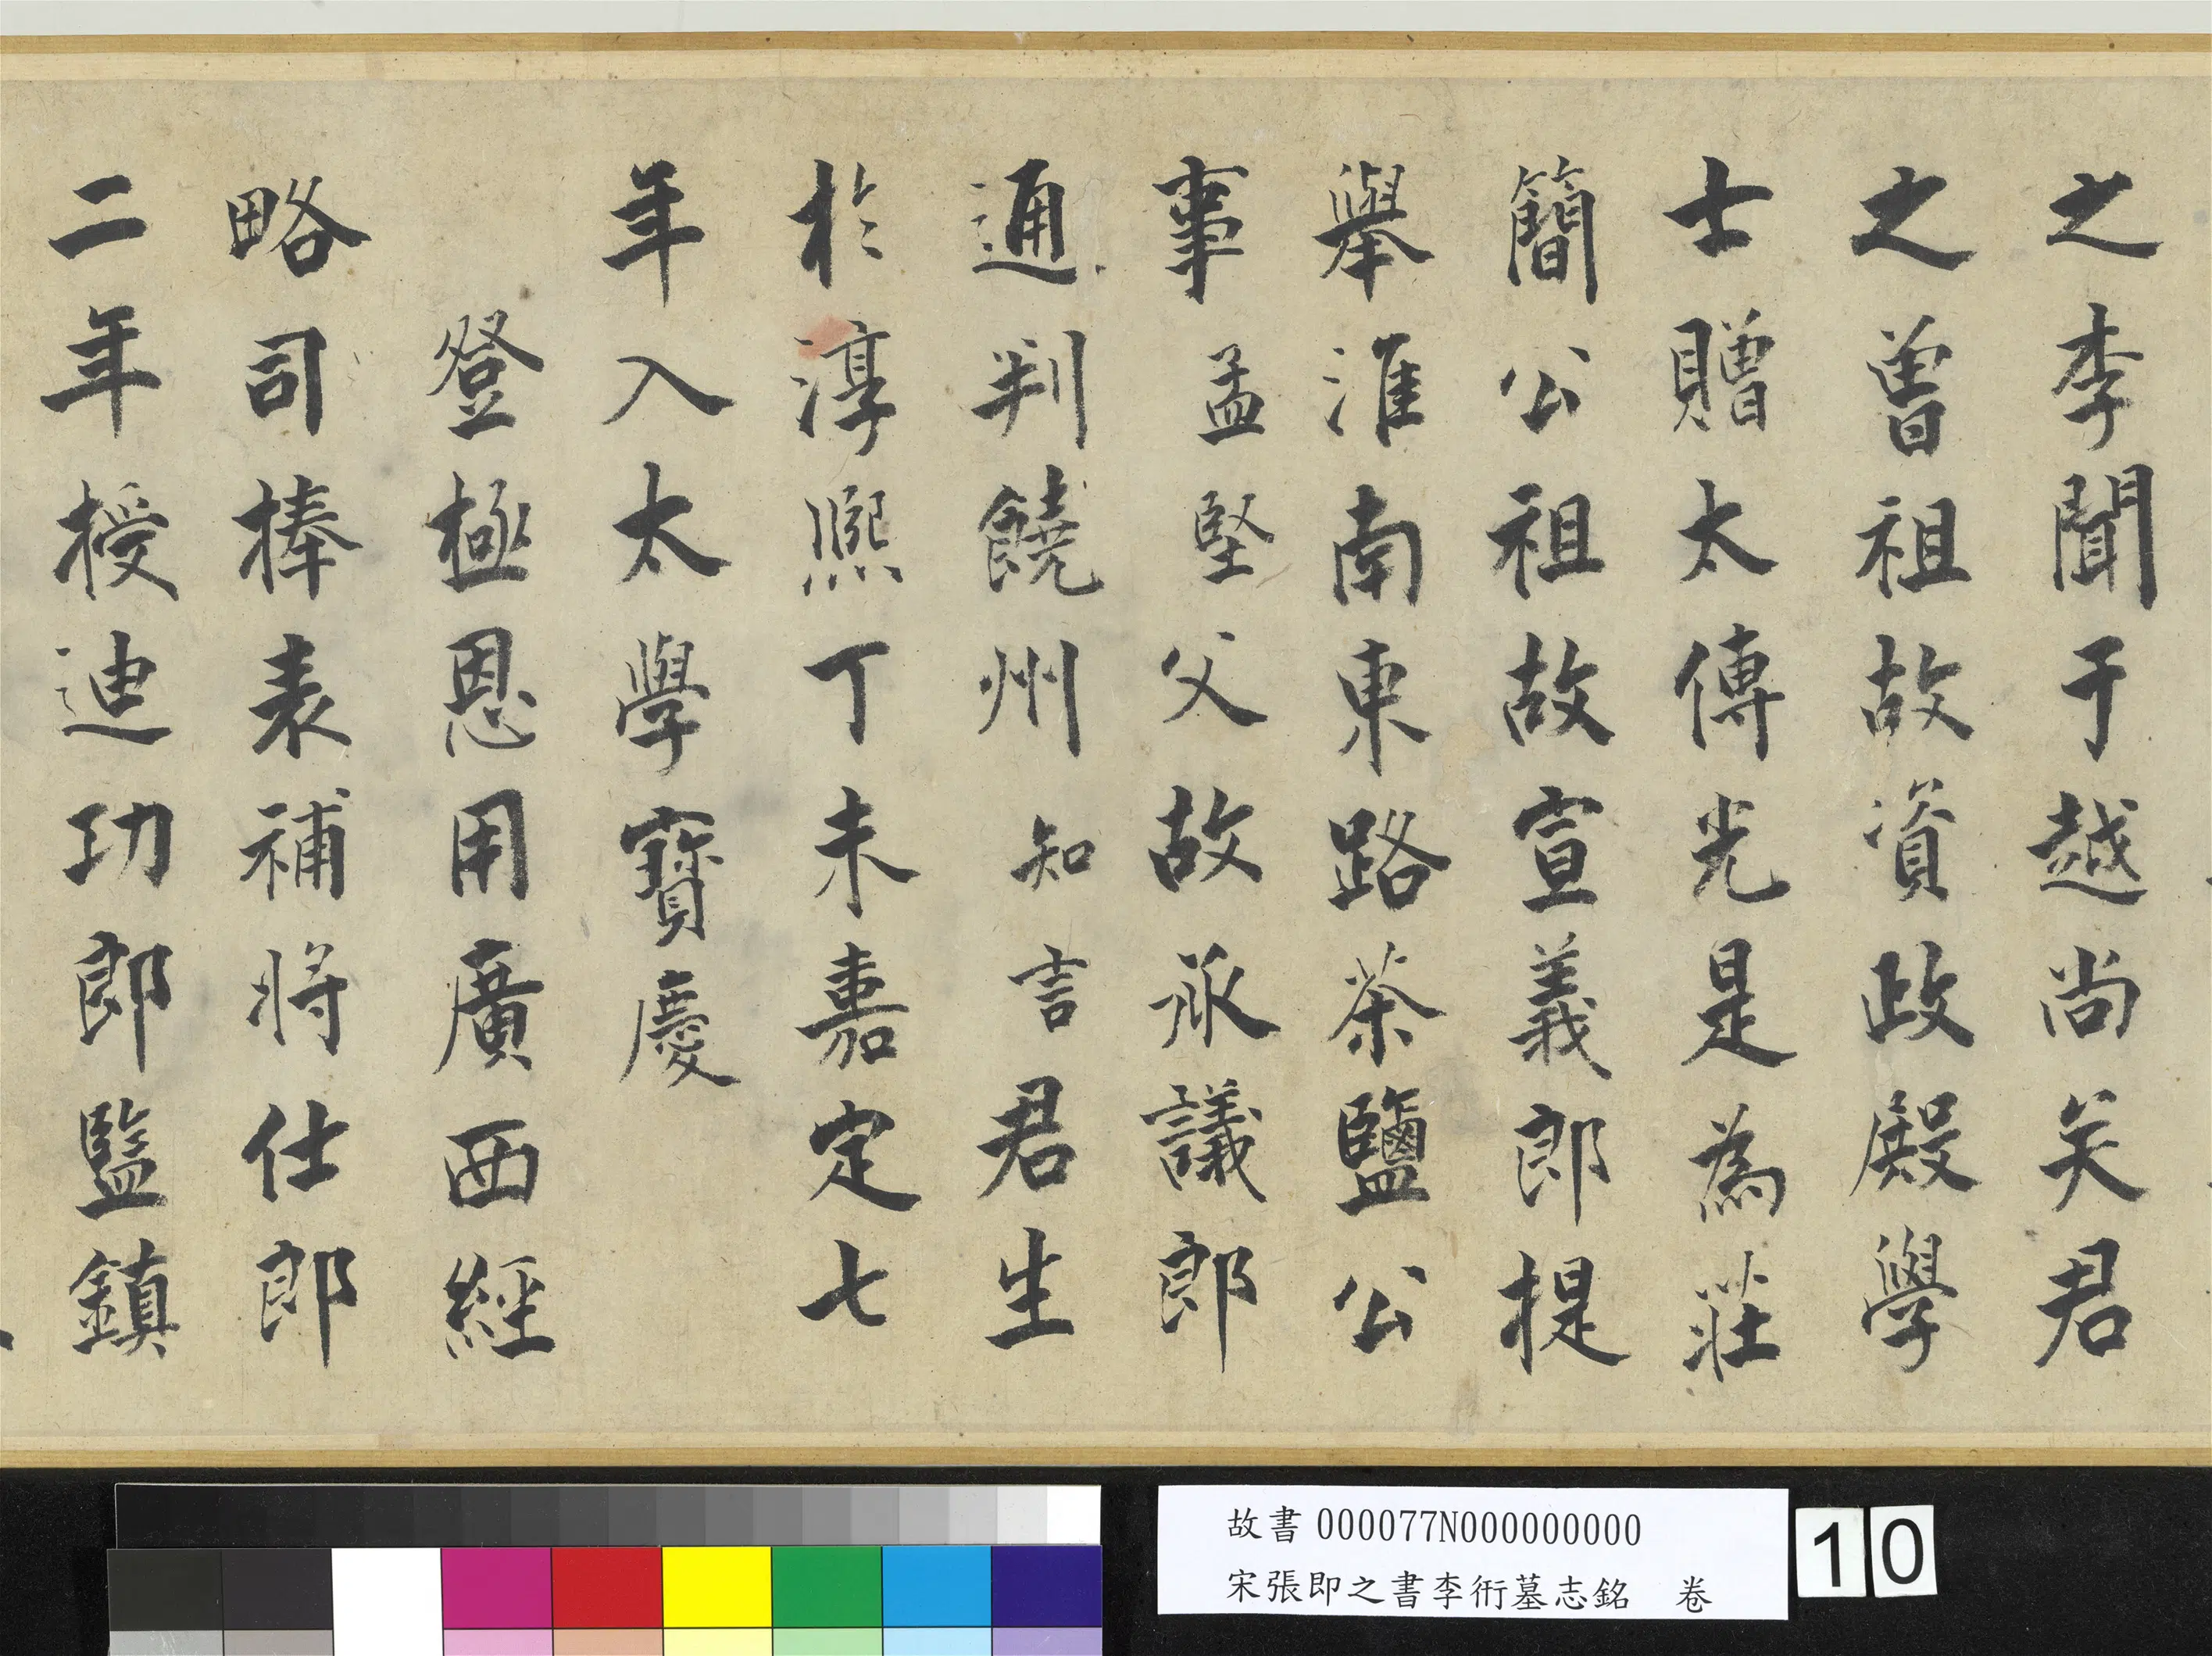 之李聞于越尚矣君
之曾祖故資政殿學
士贈太傅光是為莊
簡公祖故宣義郎提
舉淮南東路茶鹽公
事孟堅父故承議郎
通判饒州知言君生
於淳熙丁未嘉定七
年入太學寶慶
登極恩用廣西經
略司捧表補將仕郎
二年授迪功郎監鎮
故書000077N000000000
宋張即之書李衎墓志銘 卷
10